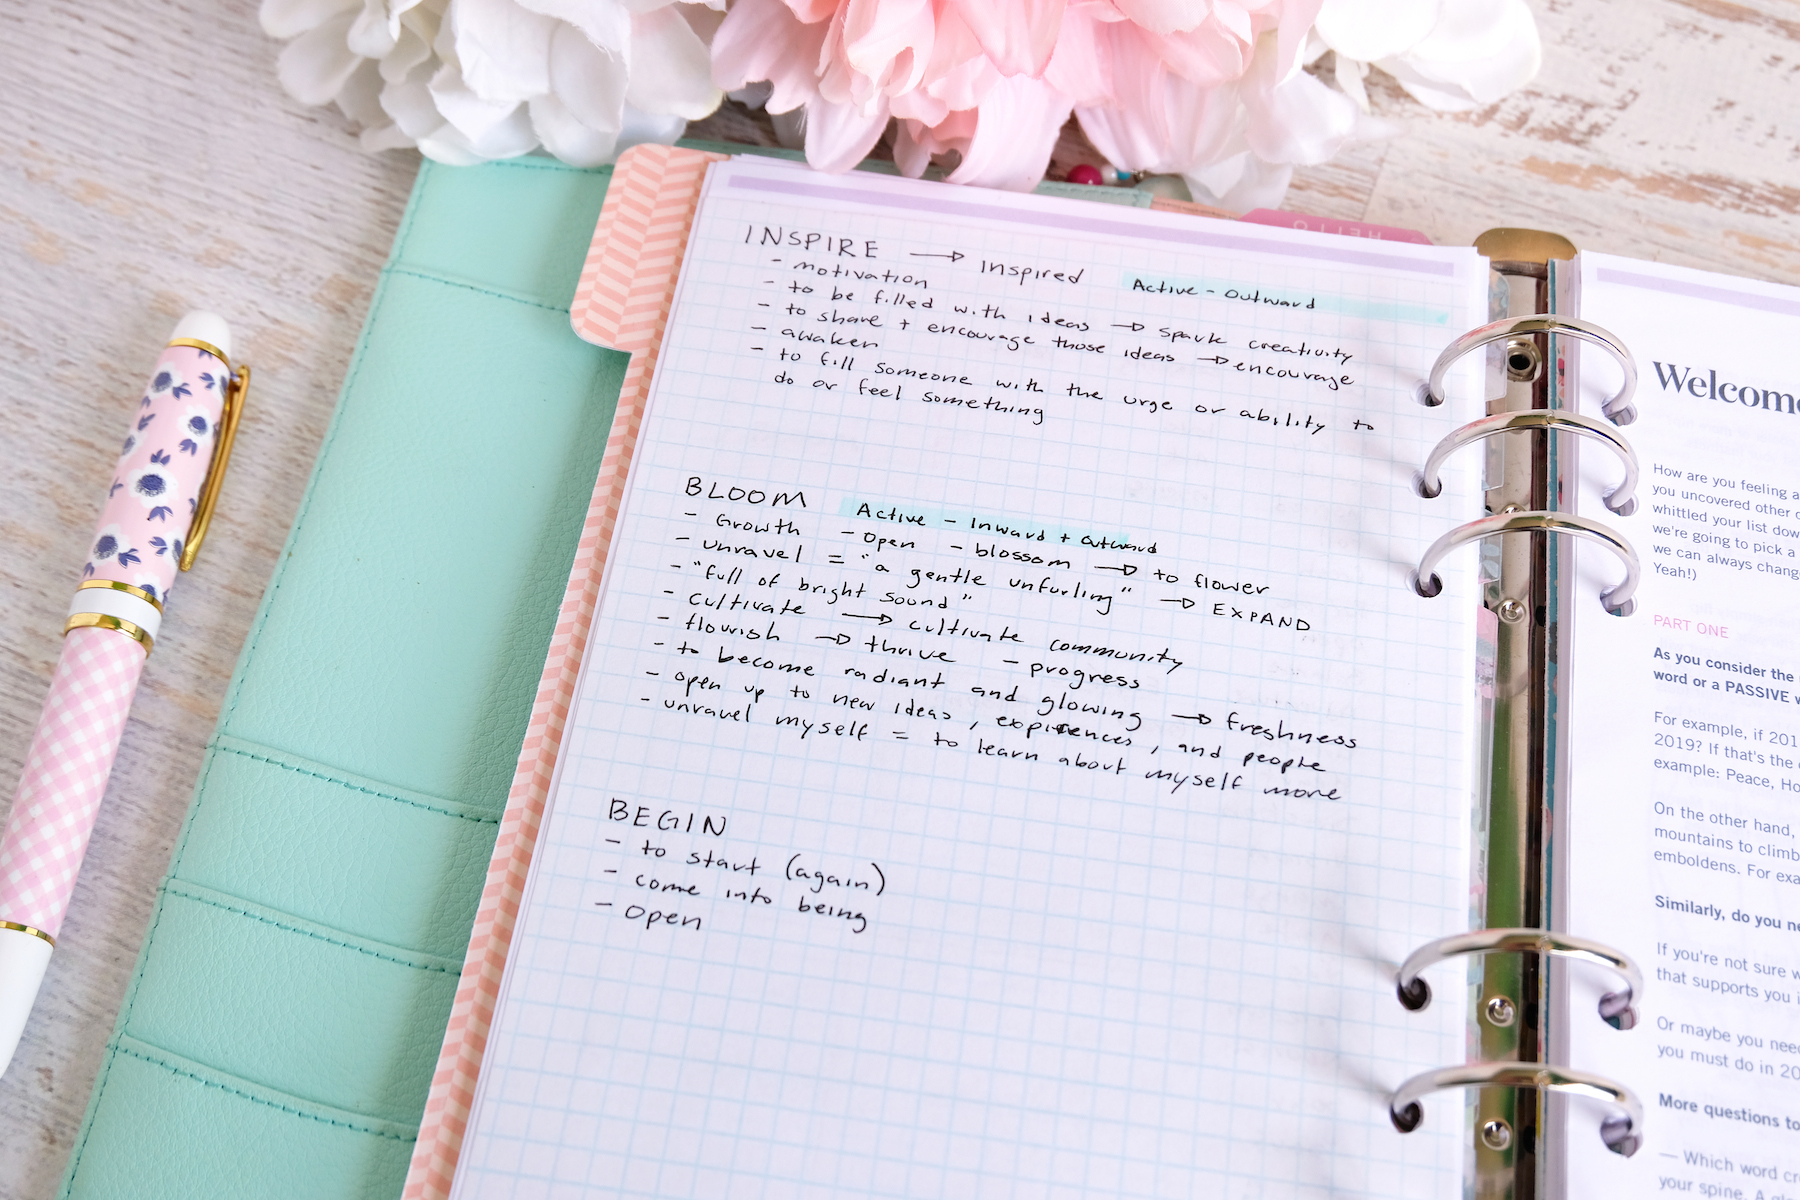 HELLO
INSPIRE → Inspired
Active - Outward
- motivation
- to be filled with ideas → spark creativity
- to share + encourage those ideas → encourage
- awaken
- to fill someone with the urge or ability to
do or feel something
BLOOM Active - Inward + Outward
- Growth - open - blossom → to flower
- unravel = "a gentle unfurling" → EXPAND
- "full of bright sound"
- cultivate → cultivate community
- flourish → thrive - progress
- to become radiant and glowing → freshness
- open up to new ideas, expiriences, and people
- unravel myself = to learn about myself more
BEGIN
- to start (again)
- come into being
- open
Welcome
How are you feeling a
you uncovered other
whittled your list dow
we're going to pick a
we can always chang
Yeah!)
PART ONE
As you consider the
word or a PASSIVE
For example, if 201
2019? If that's the
example: Peace, Ho
On the other hand,
mountains to climb
emboldens. For exa
Similarly, do you ne
If you're not sure w
that supports you i
Or maybe you need
you must do in 20
More questions to
— Which word cr
your spine. A